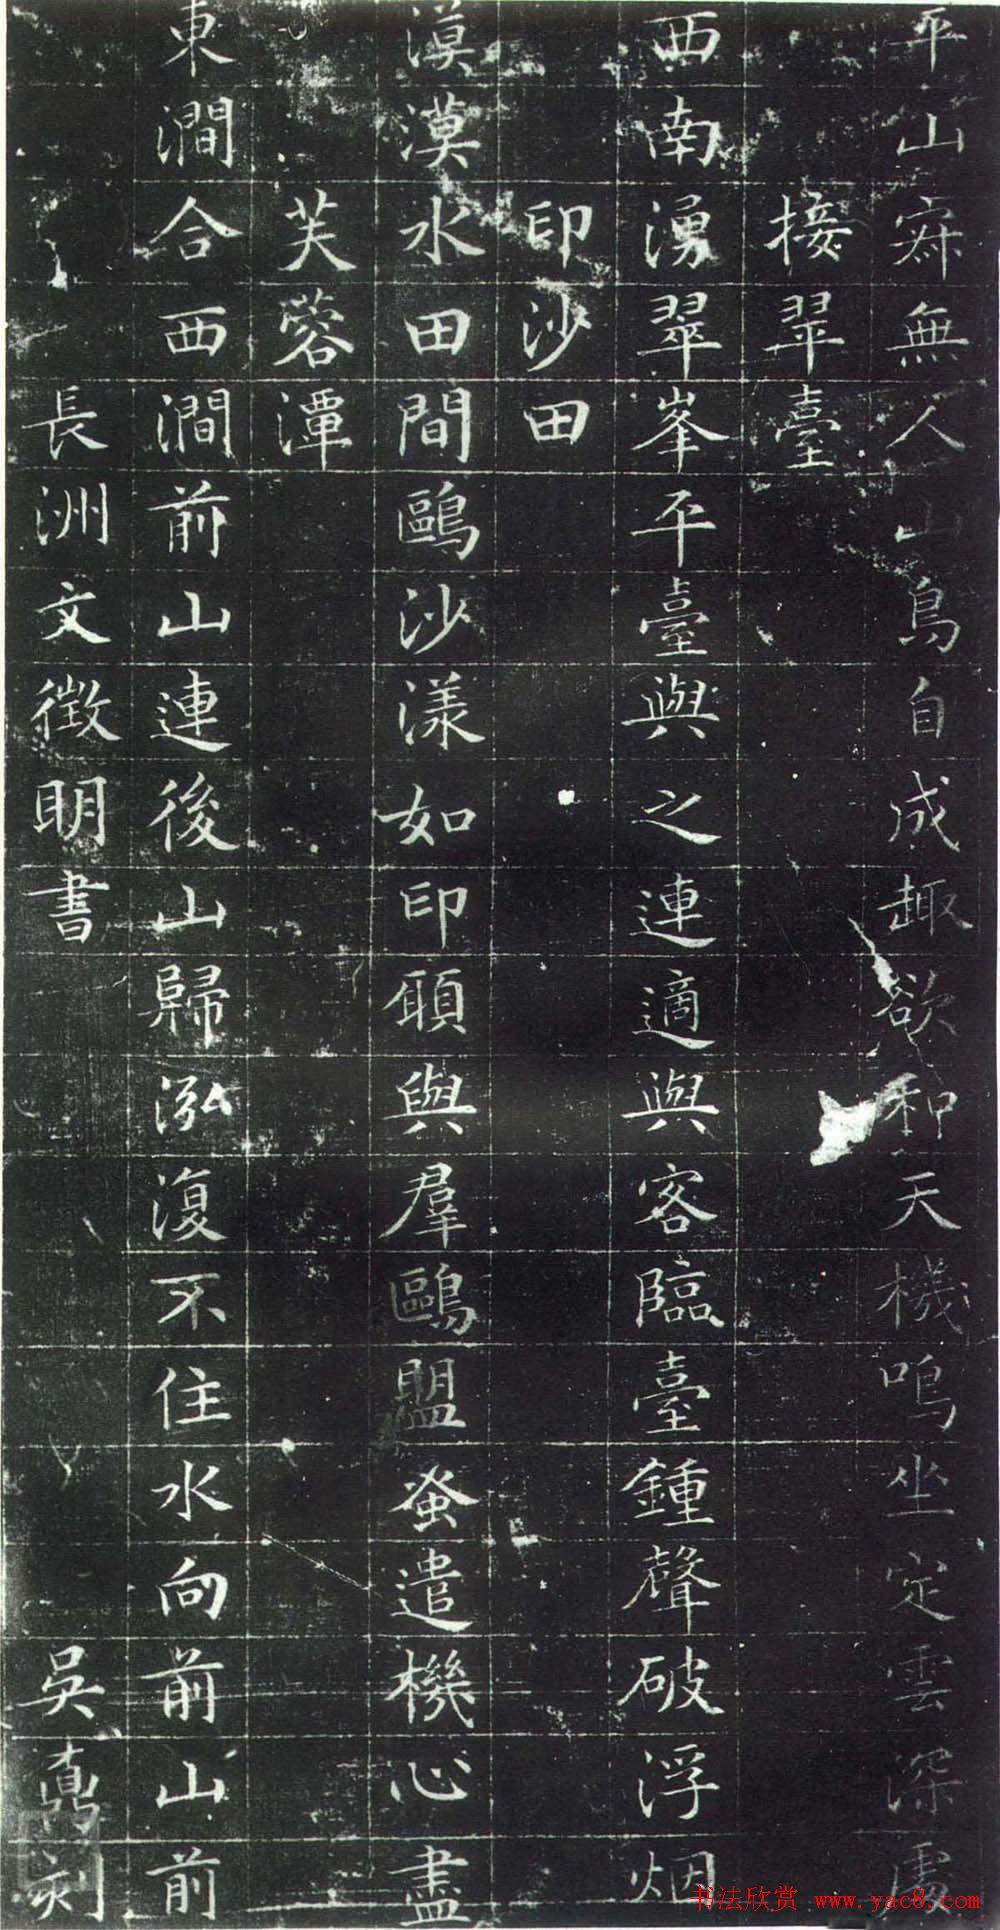 平山寂無人山鳥自成趣欲和天機鳴坐定雲深處
接翠臺
西南湧翠峯平臺與之連適與客臨臺鍾聲破浮烟
印沙田
漠漠水田間鷗沙漾如印願與羣鷗盟蚤遣機心盡
芙蓉潭
東澗合西澗前山連後山歸泓澓不住水向前山前
長洲文徵明書 吳鼒刻
书法欣赏 www.yac8.com